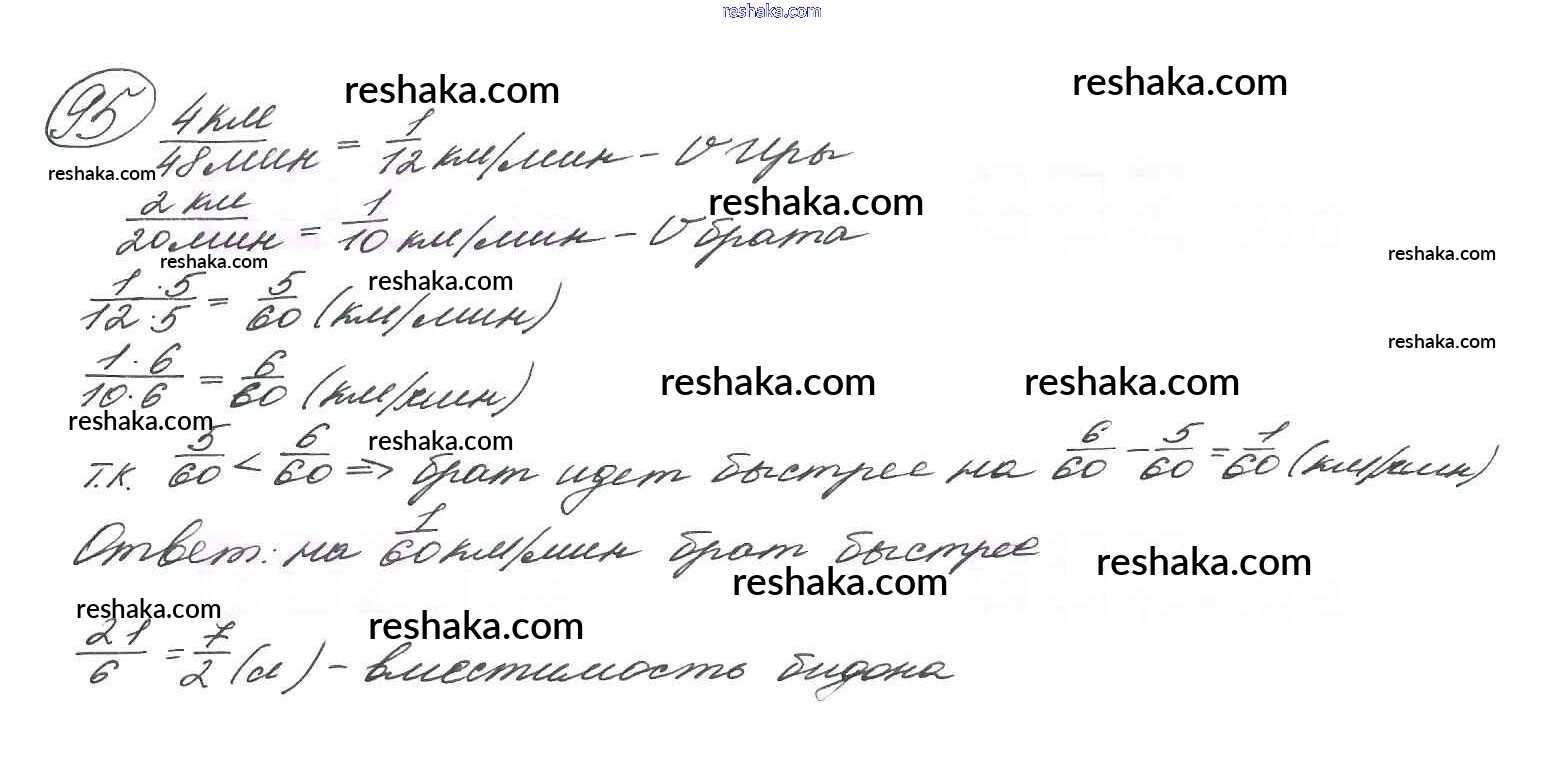 reshaka.com
reshaka.com reshaka.com
95 4 км/48 мин = 1/12 км/мин - v Иры
reshaka.com
2 км/20 мин = 1/10 км/мин - v брата
reshaka.com
reshaka.com reshaka.com
1·5/12·5 = 5/60 (км/мин)
reshaka.com
reshaka.com
1·6/10·6 = 6/60 (км/мин)
reshaka.com reshaka.com
reshaka.com reshaka.com
т.к. 5/60 < 6/60 => брат идет быстрее на 6/60 - 5/60 = 1/60 (км/мин)
Ответ: на 1/60 км/мин брат быстрее
reshaka.com reshaka.com
reshaka.com reshaka.com
21/6 = 7/2 (л) - вместимость бидона